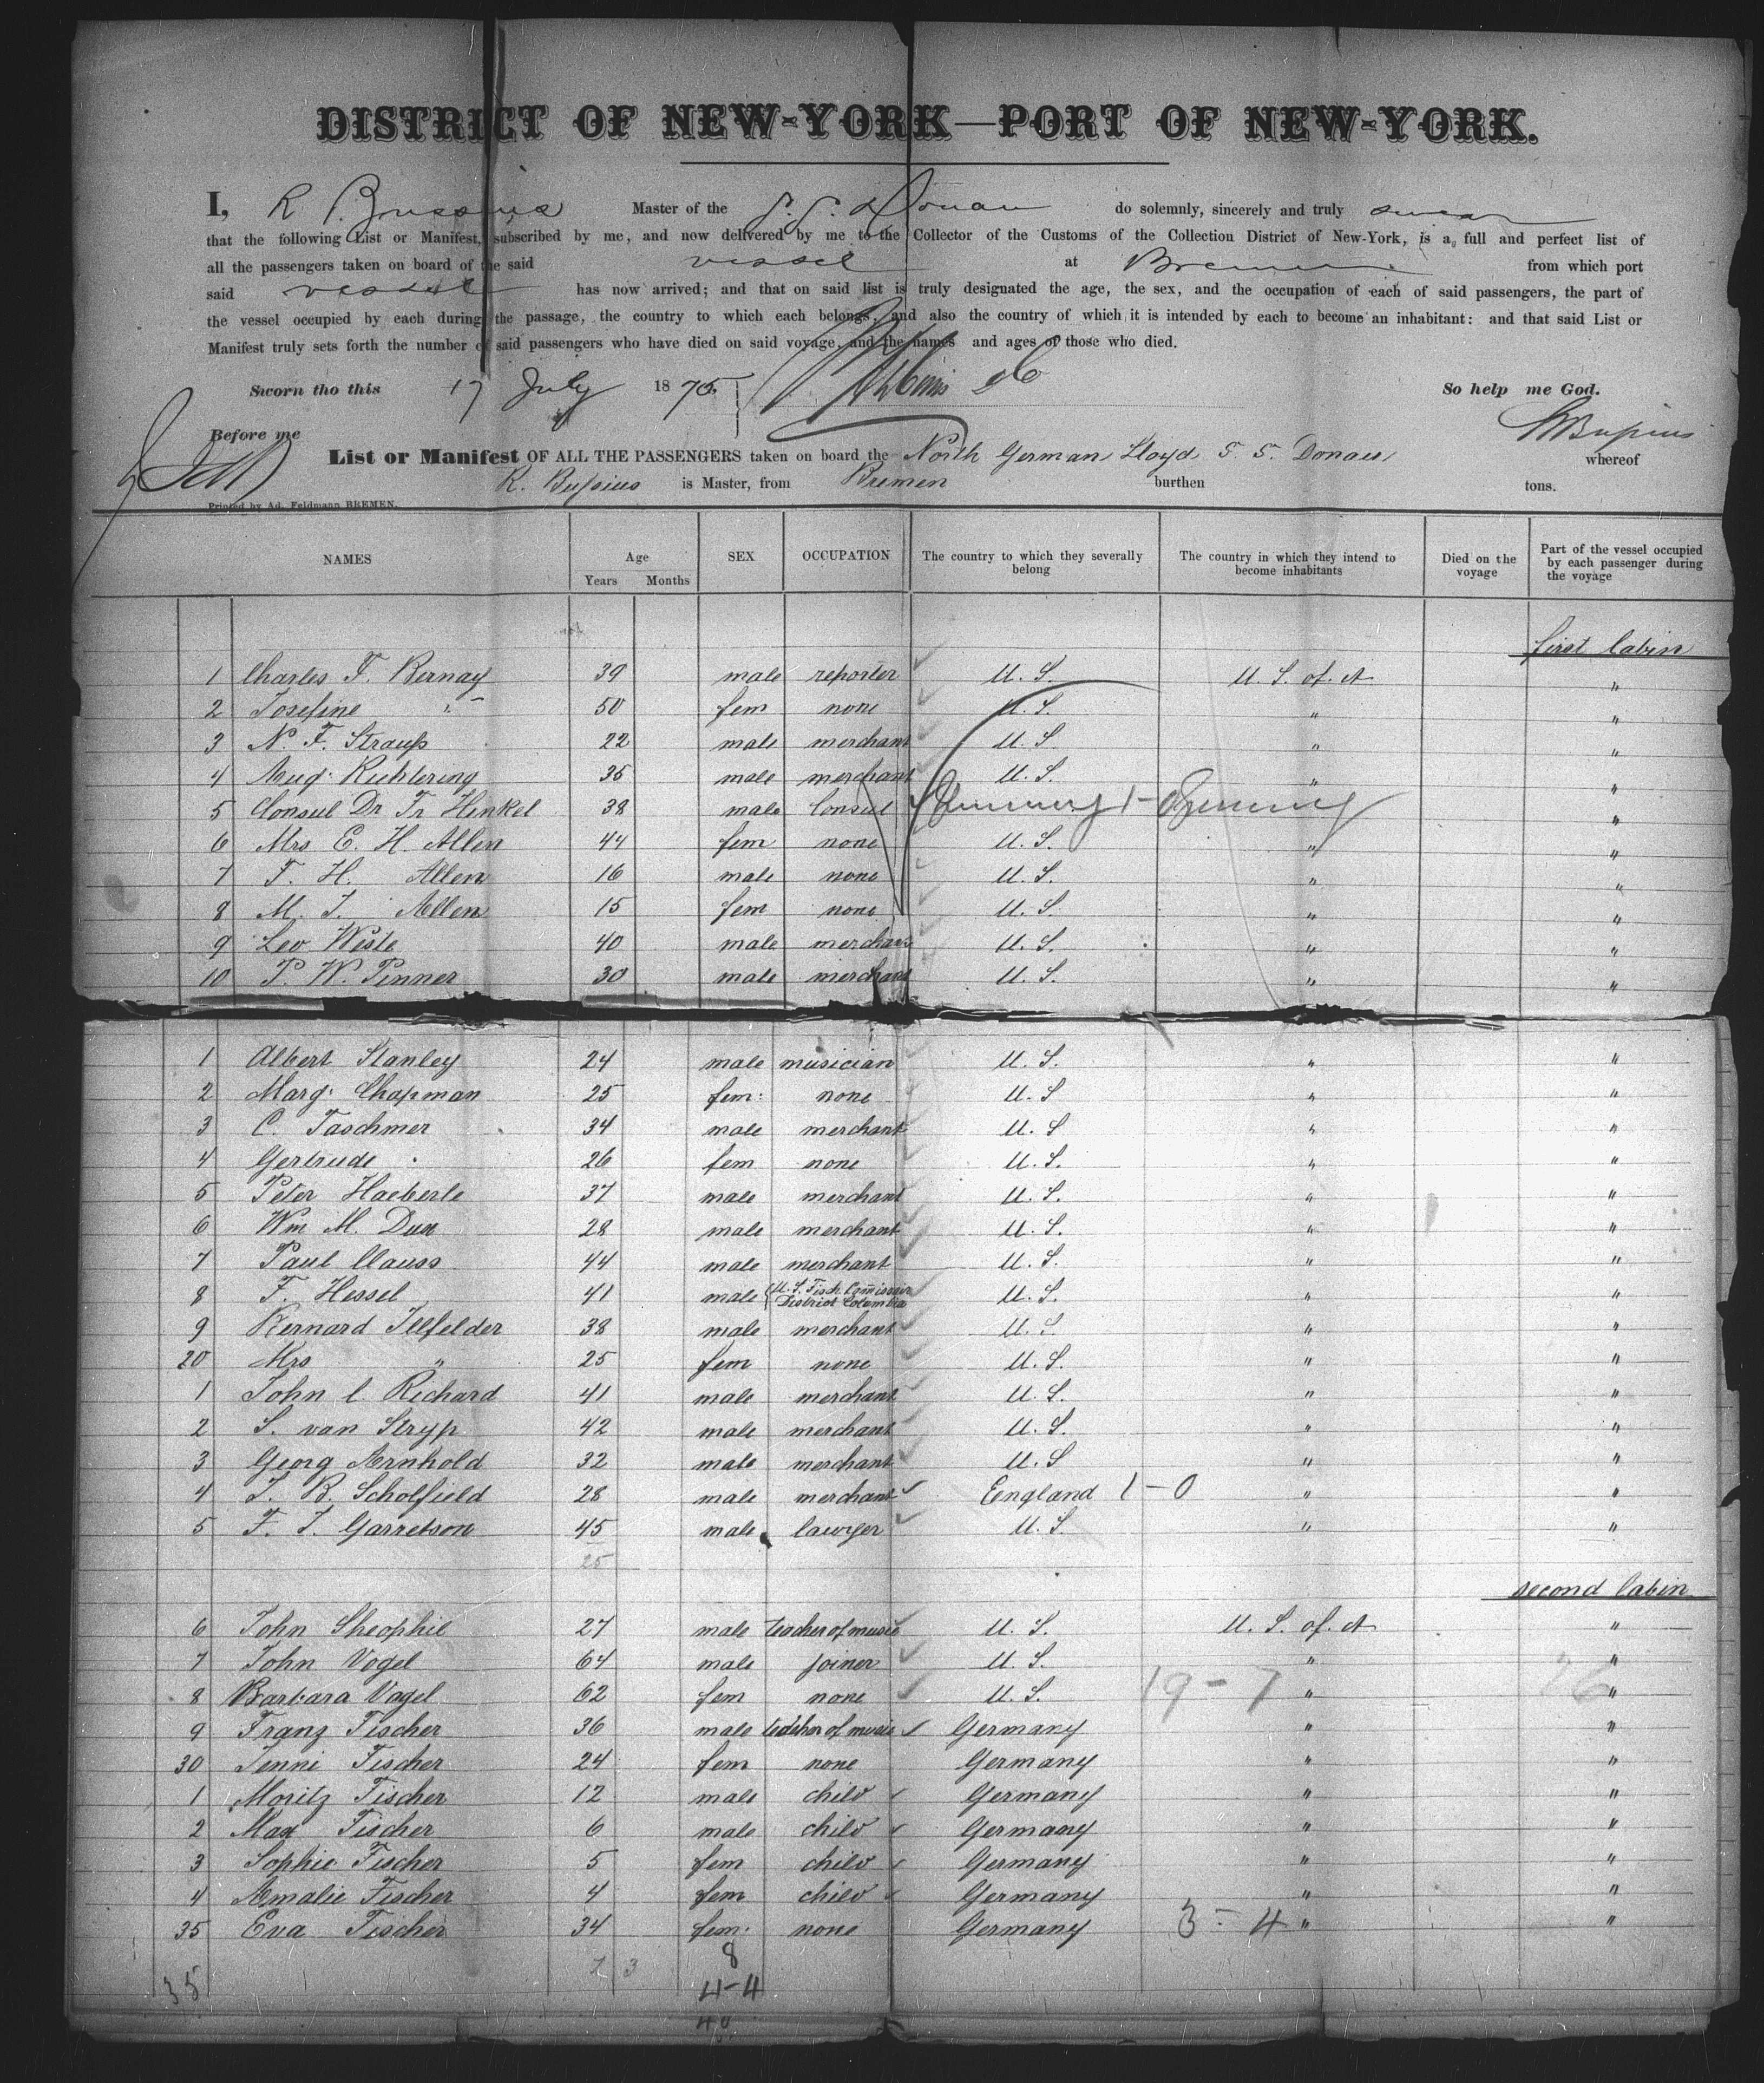 DISTRICT OF NEW-YORK—PORT OF NEW-YORK.
I, R. Bussius Master of the S. S. Donau do solemnly, sincerely and truly swear
that the following List or Manifest, subscribed by me, and now delivered by me to the Collector of the Customs of the Collection District of New-York, is a full and perfect list of
all the passengers taken on board of the said vessel at Bremen from which port
said vessel has now arrived; and that on said list is truly designated the age, the sex, and the occupation of each of said passengers, the part of
the vessel occupied by each during the passage, the country to which each belongs, and also the country of which it is intended by each to become an inhabitant: and that said List or
Manifest truly sets forth the number of said passengers who have died on said voyage, and the names and ages of those who died.
Sworn tho this 17 July 1875. So help me God.
Before me R Bussius
List or Manifest OF ALL THE PASSENGERS taken on board the North German Lloyd S. S. Donau whereof
R. Bussius is Master, from Bremen burthen tons.
Printed by Ad. Feldmann BREMEN.
NAMES Age Years Months SEX OCCUPATION The country to which they severally belong The country in which they intend to become inhabitants Died on the voyage Part of the vessel occupied by each passenger during the voyage
first Cabin
1 Charles F. Bernay 39 male reporter U. S. U. S. of A "
2 Josefine " 50 fem none U. S. " "
3 N. F. Strauß 22 male merchant U. S " "
4 Aug. Richtering 35 male merchant U. S. " "
5 Consul Dr Fr Henkel 38 male Consul Germany 1- Germany "
6 Mrs E. H. Allen 44 fem none U. S. " "
7 F. H. Allen 16 male none U. S. " "
8 M. J. Allen 15 fem none U. S. " "
9 Leo Weste 40 male merchant U. S. " "
10 P. W. Pinner 30 male merchant U. S. " "
1 Albert Stanley 24 male musician U. S. " "
2 Marg. Chapman 25 fem: none U. S " "
3 C. Taschmer 34 male merchant U. S " "
4 Gertrude " 26 fem none U. S. " "
5 Peter Haeberle 37 male merchant U. S. " "
6 Wm M. Dun 28 male merchant U. S. " "
7 Paul Clauss 44 male merchant U. S. " "
8 F. Hessel 41 male U. S. Fisch Comissair District Columbia U. S. " "
9 Bernard Illfelder 38 male merchant U. S. " "
20 Mrs " 25 fem none U. S. " "
1 John C. Richard 41 male merchant U. S. " "
2 S. van Stryp 42 male merchant U. S. " "
3 Georg Arnhold 32 male merchant U. S " "
4 J. B. Scholfield 28 male merchant England 1-0 " "
5 F. J. Garretson 45 male lawyer U. S. " "
25
second Cabin
6 John Sheophil 27 male teacher of music U. S. U. S. of A "
7 John Vogel 64 male joiner U. S. " "
8 Barbara Vogel 62 fem none U. S. 19-7 " 26 "
9 Franz Fischer 36 male teacher of music Germany " "
30 Jenni Fischer 24 fem none Germany " "
1 Moritz Fischer 12 male child Germany " "
2 Max Fischer 6 male child Germany " "
3 Sophie Fischer 5 fem child Germany " "
4 Amalie Fischer 4 fem child Germany " "
35 Eva Fischer 34 fem: none Germany 3-4 " "
7 3 8
35 4-4
40